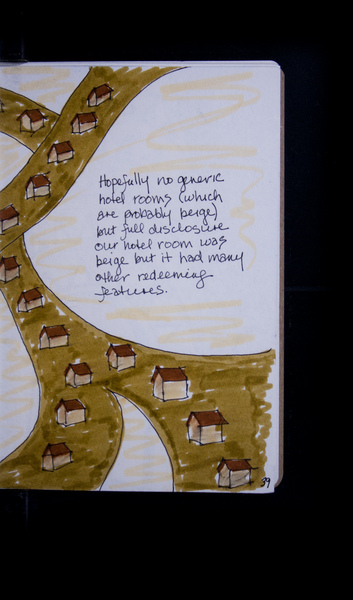 Hopefully no generic
hotel rooms (which
are probably beige)
but full disclosure
our hotel room was
beige but it had many
other redeeming
features.
39